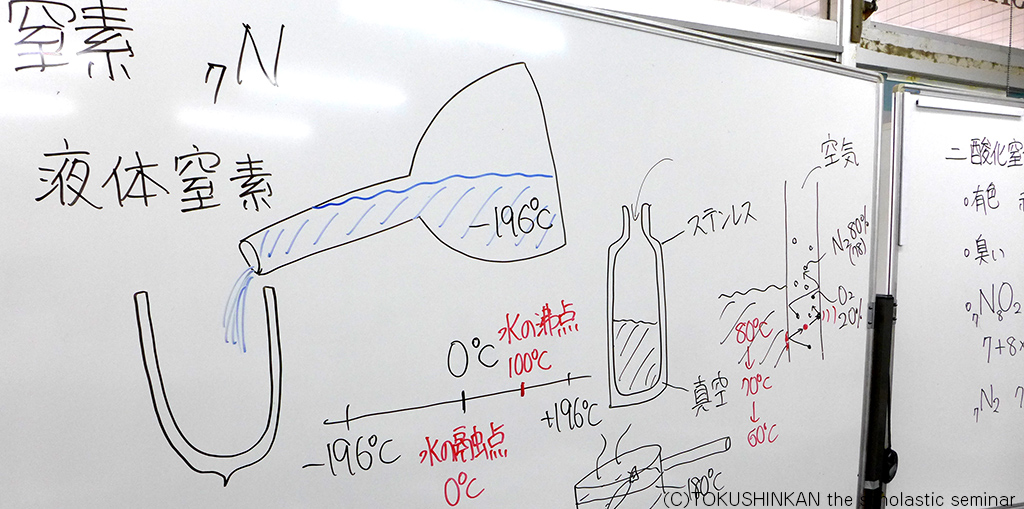 窒素
₇N
液体窒素
-196℃
ステンレス
真空
空気
N₂ 80%
(78)
O₂
20%
80℃
↓
70℃
↓
60℃
水の沸点
100℃
0℃
-196℃
+196℃
水の融点
0℃
180℃
二酸化窒
有色
臭い
₇N₈O₂
7+8×
₇N₂ 7
(C)TOKUSHINKAN the scholastic seminar